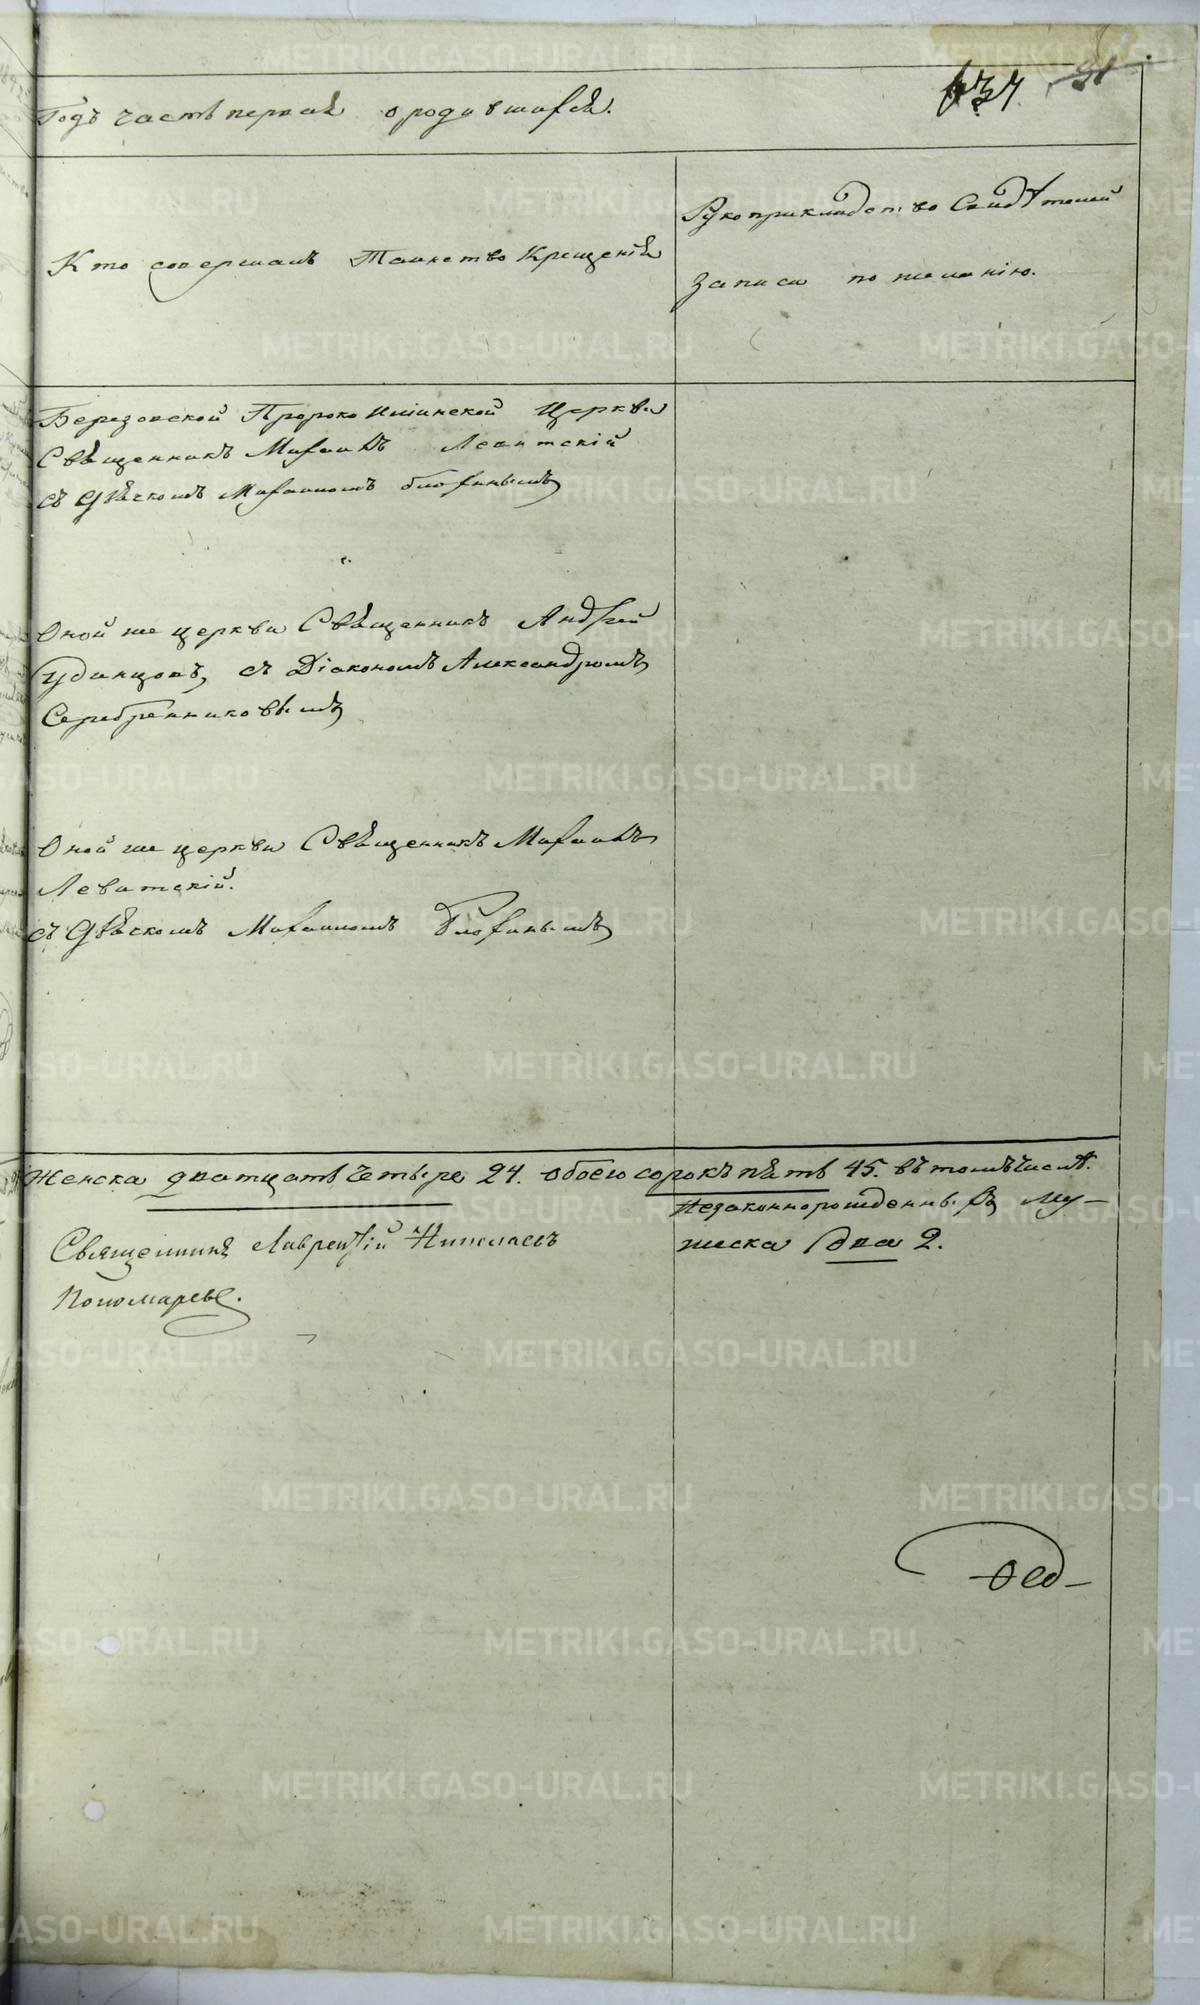 Годъ часть первая о родившихся.
Кто совершалъ Таинство Крещенія
Рукоприкладство Свидѣтелей
записи по желанію.
Березовской Пророко Ильинской Церкви
Священникъ Михаилъ Левитскій
съ Дьячкомъ Михаиломъ
Оной же церкви Священникъ Андрей
Удинцовъ, съ Діакономъ Александромъ
Серебренниковымъ
Оной же церкви Священникъ Михаилъ
Левитскій.
съ Дьячкомъ Михаиломъ
Женска дватцать четыре 24. обоего сорокъ пять 45. въ томъ числѣ.
незаконнорожденныхъ му-
жеска два 2.
Священникъ Лаврентій Николаевъ
Пономаревъ.
METRIKI.GASO-URAL.RU